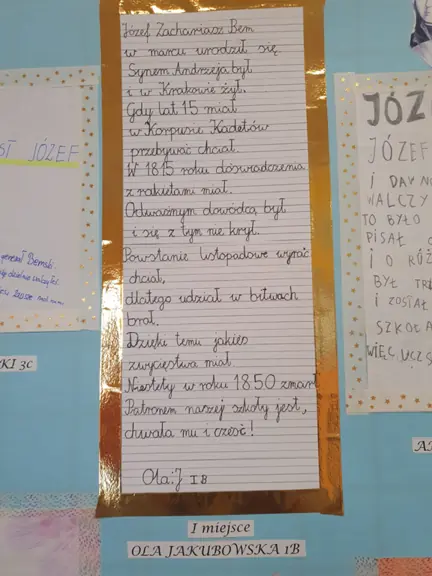 Józef Zachariasz Bem
w marcu urodził się.
Synem Andrzeja był
i w Krakowie żył.
Gdy lat 15 miał
w Korpusie Kadetów
przebywać chciał.
W 1815 roku doświadczenia
z rakietami miał.
Odważnym dowódcą był
i się z tym nie krył.
Powstanie listopadowe wygrać
chciał,
dlatego udział w bitwach
brał.
Dzięki temu jakieś
zwycięstwa miał.
Niestety w roku 1850 zmarł
Patronem naszej szkoły jest,
chwała mu i cześć!
Ola:J 1B
I miejsce
OLA JAKUBOWSKA 1B
JÓZEF
generał Bemski
KI 3C
JÓZ
JÓZEF
I DAW
WALCZY
TO BYŁO
PISAŁ
I O RÓŻ
BYŁ
I ZOSTAŁ
SZKOŁ
WIĘC UCZ